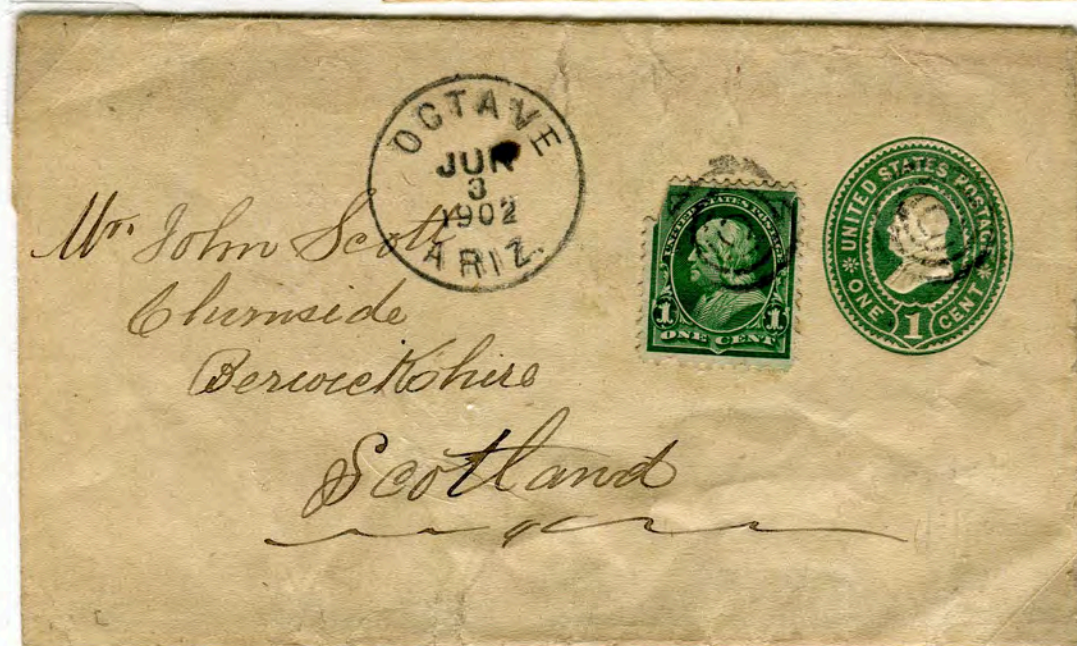 OCTAVE
JUN
3
1902
ARIZ.
Mr. John Scott
Churnside
Berwickshire
Scotland
UNITED STATES POSTAGE
1 1
ONE CENT
UNITED STATES POSTAGE
ONE 1 CENT